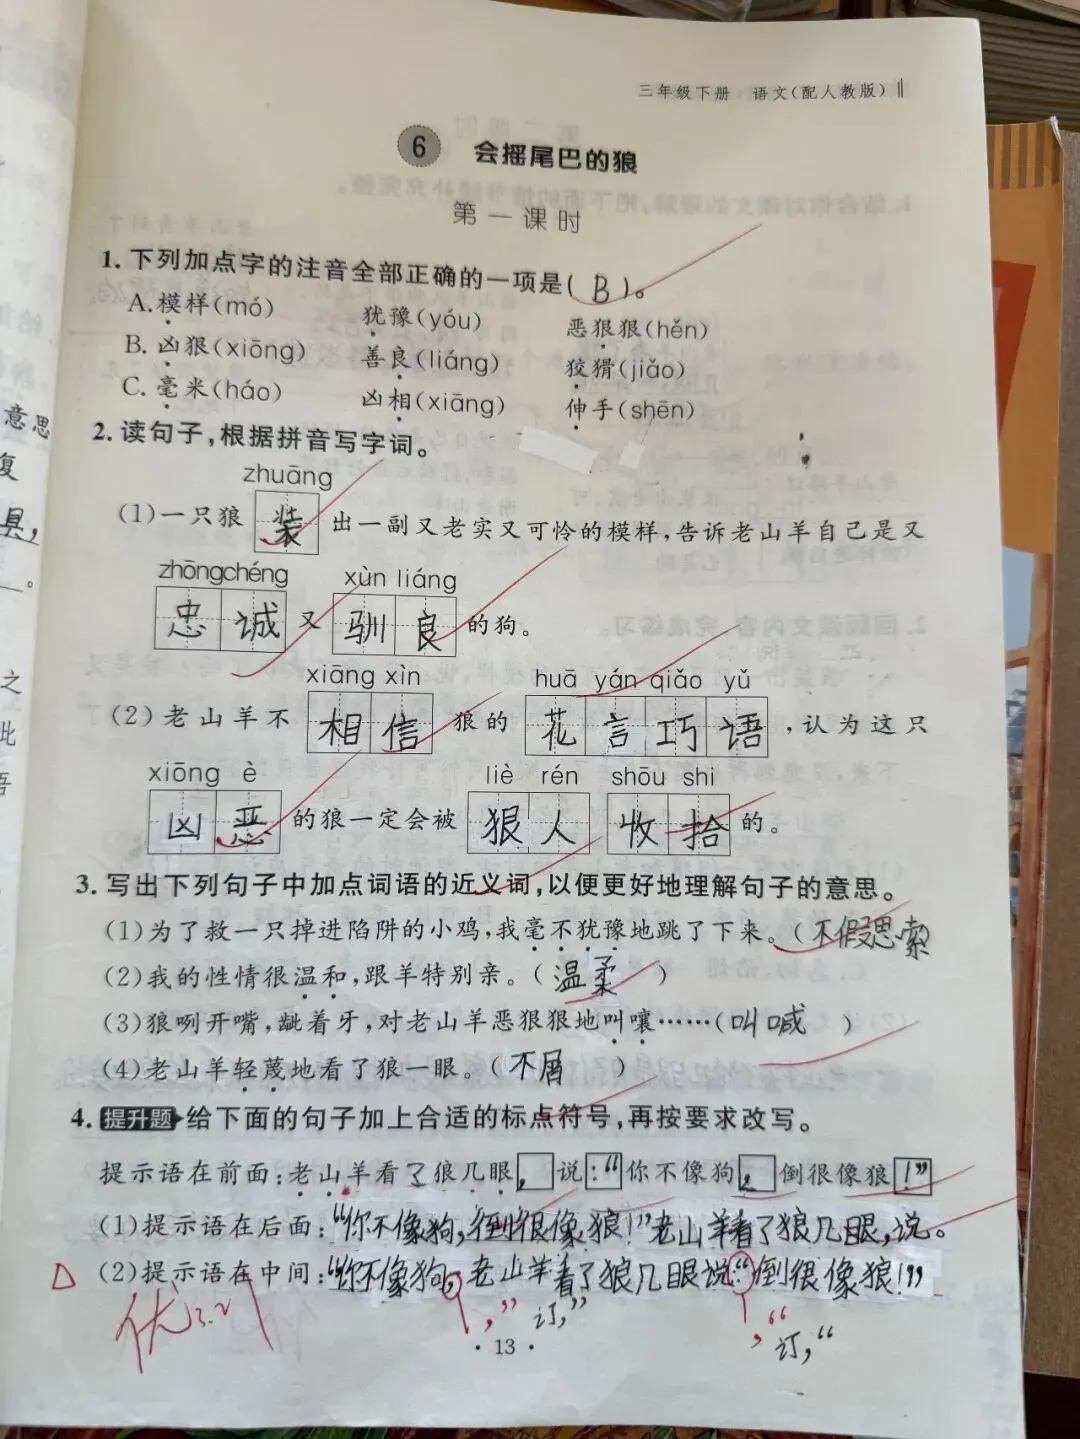 三年级下册 语文(配人教版)
6 会摇尾巴的狼
第一课时
1. 下列加点字的注音全部正确的一项是( B )。
A.模样(mó) 犹豫(yóu) 恶狠狠(hěn)
B.凶狠(xiōng) 善良(liáng) 狡猾(jiǎo)
C.毫米(háo) 凶相(xiāng) 伸手(shēn)
2. 读句子,根据拼音写字词。
zhuāng
(1)一只狼 装 出一副又老实又可怜的模样,告诉老山羊自己是又
zhōngchéng xùn liáng
忠诚 又 驯良 的狗。
xiāng xìn huā yán qiǎo yǔ
(2)老山羊不 相信 狼的 花言巧语 ,认为这只
xiōng è liè rén shōu shi
凶恶 的狼一定会被 狠人 收拾 的。
3. 写出下列句子中加点词语的近义词,以便更好地理解句子的意思。
(1)为了救一只掉进陷阱的小鸡,我毫不犹豫地跳了下来。(不假思索
(2)我的性情很温和,跟羊特别亲。(温柔 )
(3)狼咧开嘴,龇着牙,对老山羊恶狠狠地叫嚷……(叫喊 )
(4)老山羊轻蔑地看了狼一眼。(不屑 )
4. 提升题 给下面的句子加上合适的标点符号,再按要求改写。
提示语在前面:老山羊看了狼几眼,说:“你不像狗,倒很像狼!”
(1)提示语在后面:“你不像狗,倒很像狼!”老山羊看了狼几眼,说。
(2)提示语在中间:“你不像狗,老山羊看了狼几眼说:“倒很像狼!”
优3.21 ,” 订,” ,“ 订,“
· 13 ·
意思
复
具,
。
之
此
语